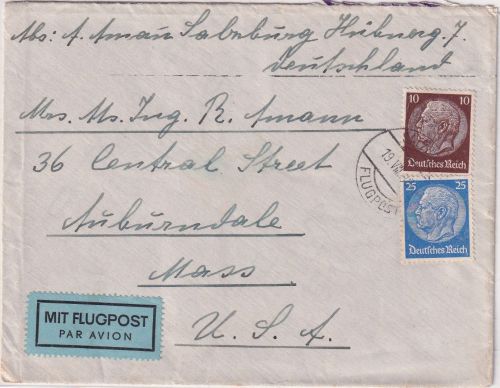 Abs: A. Aman Salzburg Hübnerg. 7.
Deutschland
Mrs. Ms. Ing. R. Amann
36 Central Street
Auburndale
Mass.
U. S. A.
10 10
Deutsches Reich
25 25
Deutsches Reich
19. VIII
FLUGPOST
MIT FLUGPOST
PAR AVION